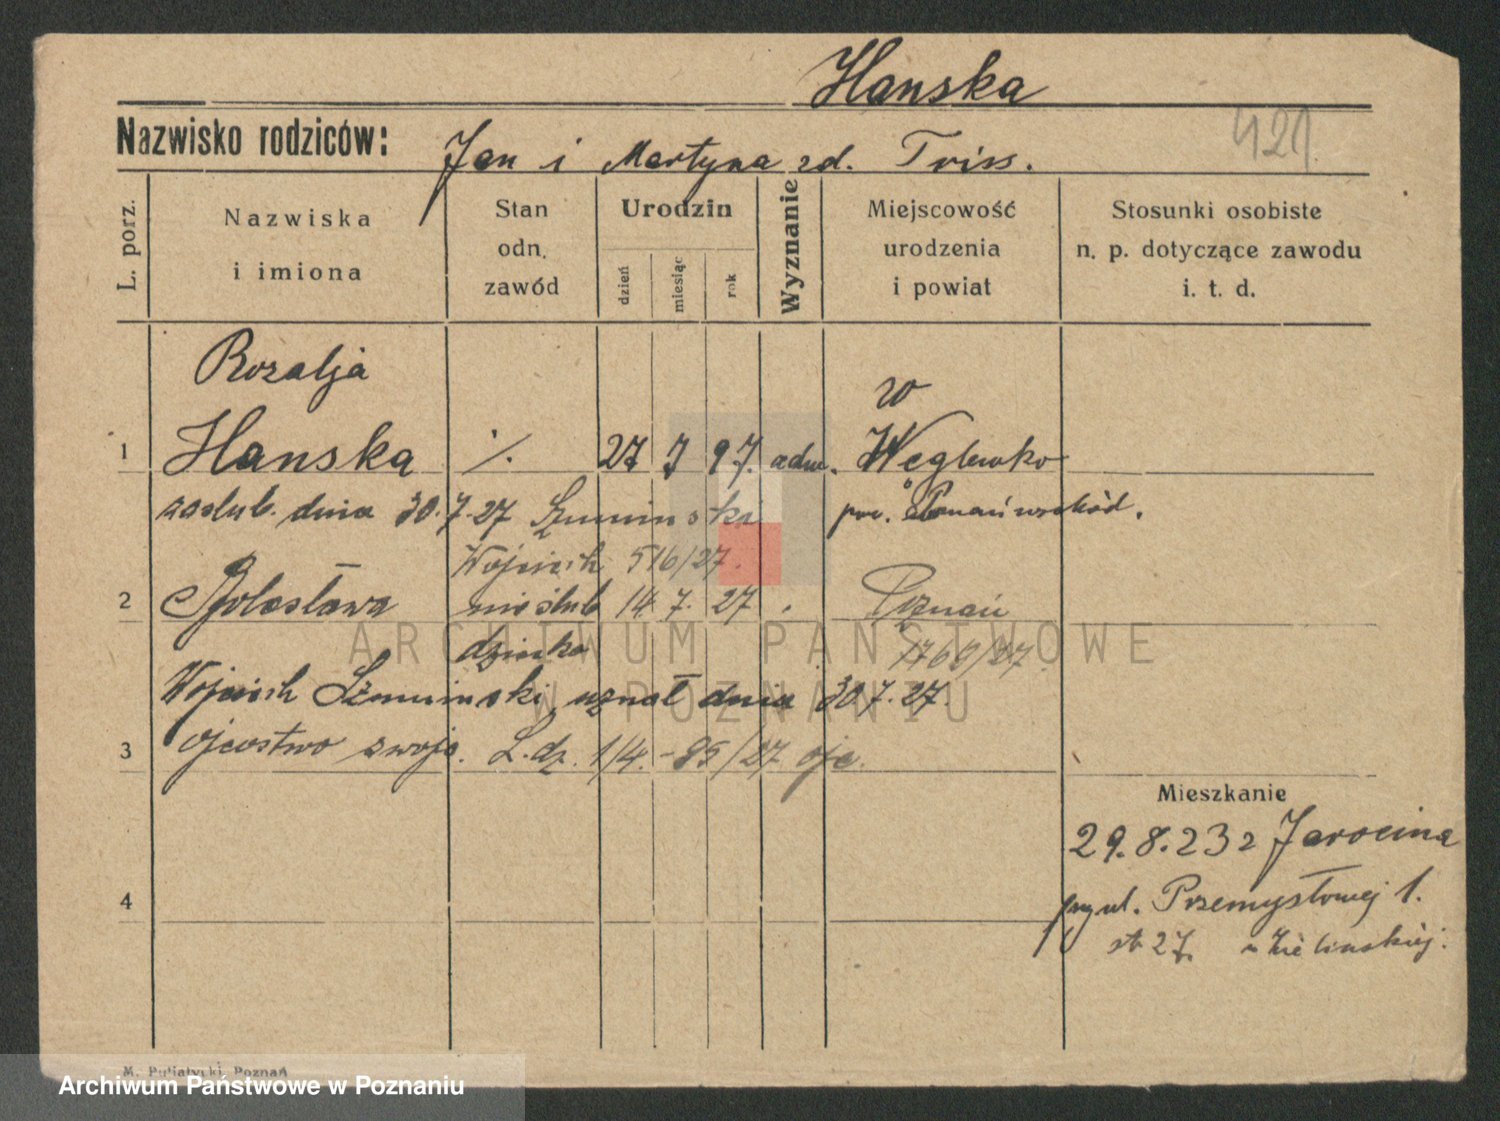 Hanska
421
Nazwisko rodziców: Jan i Martyna zd. Triss.
L. porz.
Nazwiska i imiona
Stan odn. zawód
Urodzin
dzień
miesiąc
rok
Wyznanie
Miejscowość urodzenia i powiat
Stosunki osobiste n. p. dotyczące zawodu i. t. d.
Rozalja
w
1 Hanska ·/. 27 7 97.
zaślub. dnia 30.7.27 Szuminski pow. Poznań wschód.
Wojciech 516/27.
2 Bolesława nieślub 14. 7. 27 Poznań
dziecko 1760/27.
Wojciech Szuminski uznał dnia 30.7.27.
3 ojcostwo swoje. L. dz. 1/4. - 85/27
Mieszkanie
29.8.23 z Jarocina
4 przy ul. Przemysłowej 1.
27.
M. Putiatycki, Poznań
ARCHIWUM PAŃSTWOWE
W POZNANIU
Archiwum Państwowe w Poznaniu